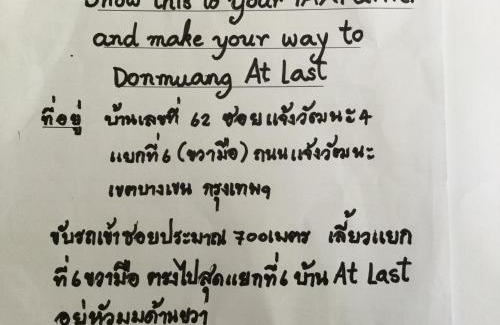 Show this to your TAXI driver
and make your way to
Donmuang At Last
ที่อยู่ บ้านเลขที่ 62 ซอยแจ้งวัฒนะ 4
แยกที่ 6 (ขวามือ) ถนนแจ้งวัฒนะ
เขตบางเขน กรุงเทพฯ
ขับรถเข้าซอยประมาณ 700เมตร เลี้ยวแยก
ที่ 6 ขวามือ ตรงไปสุดแยกที่ 6 บ้าน At Last
อยู่หัวมุมด้านขวา